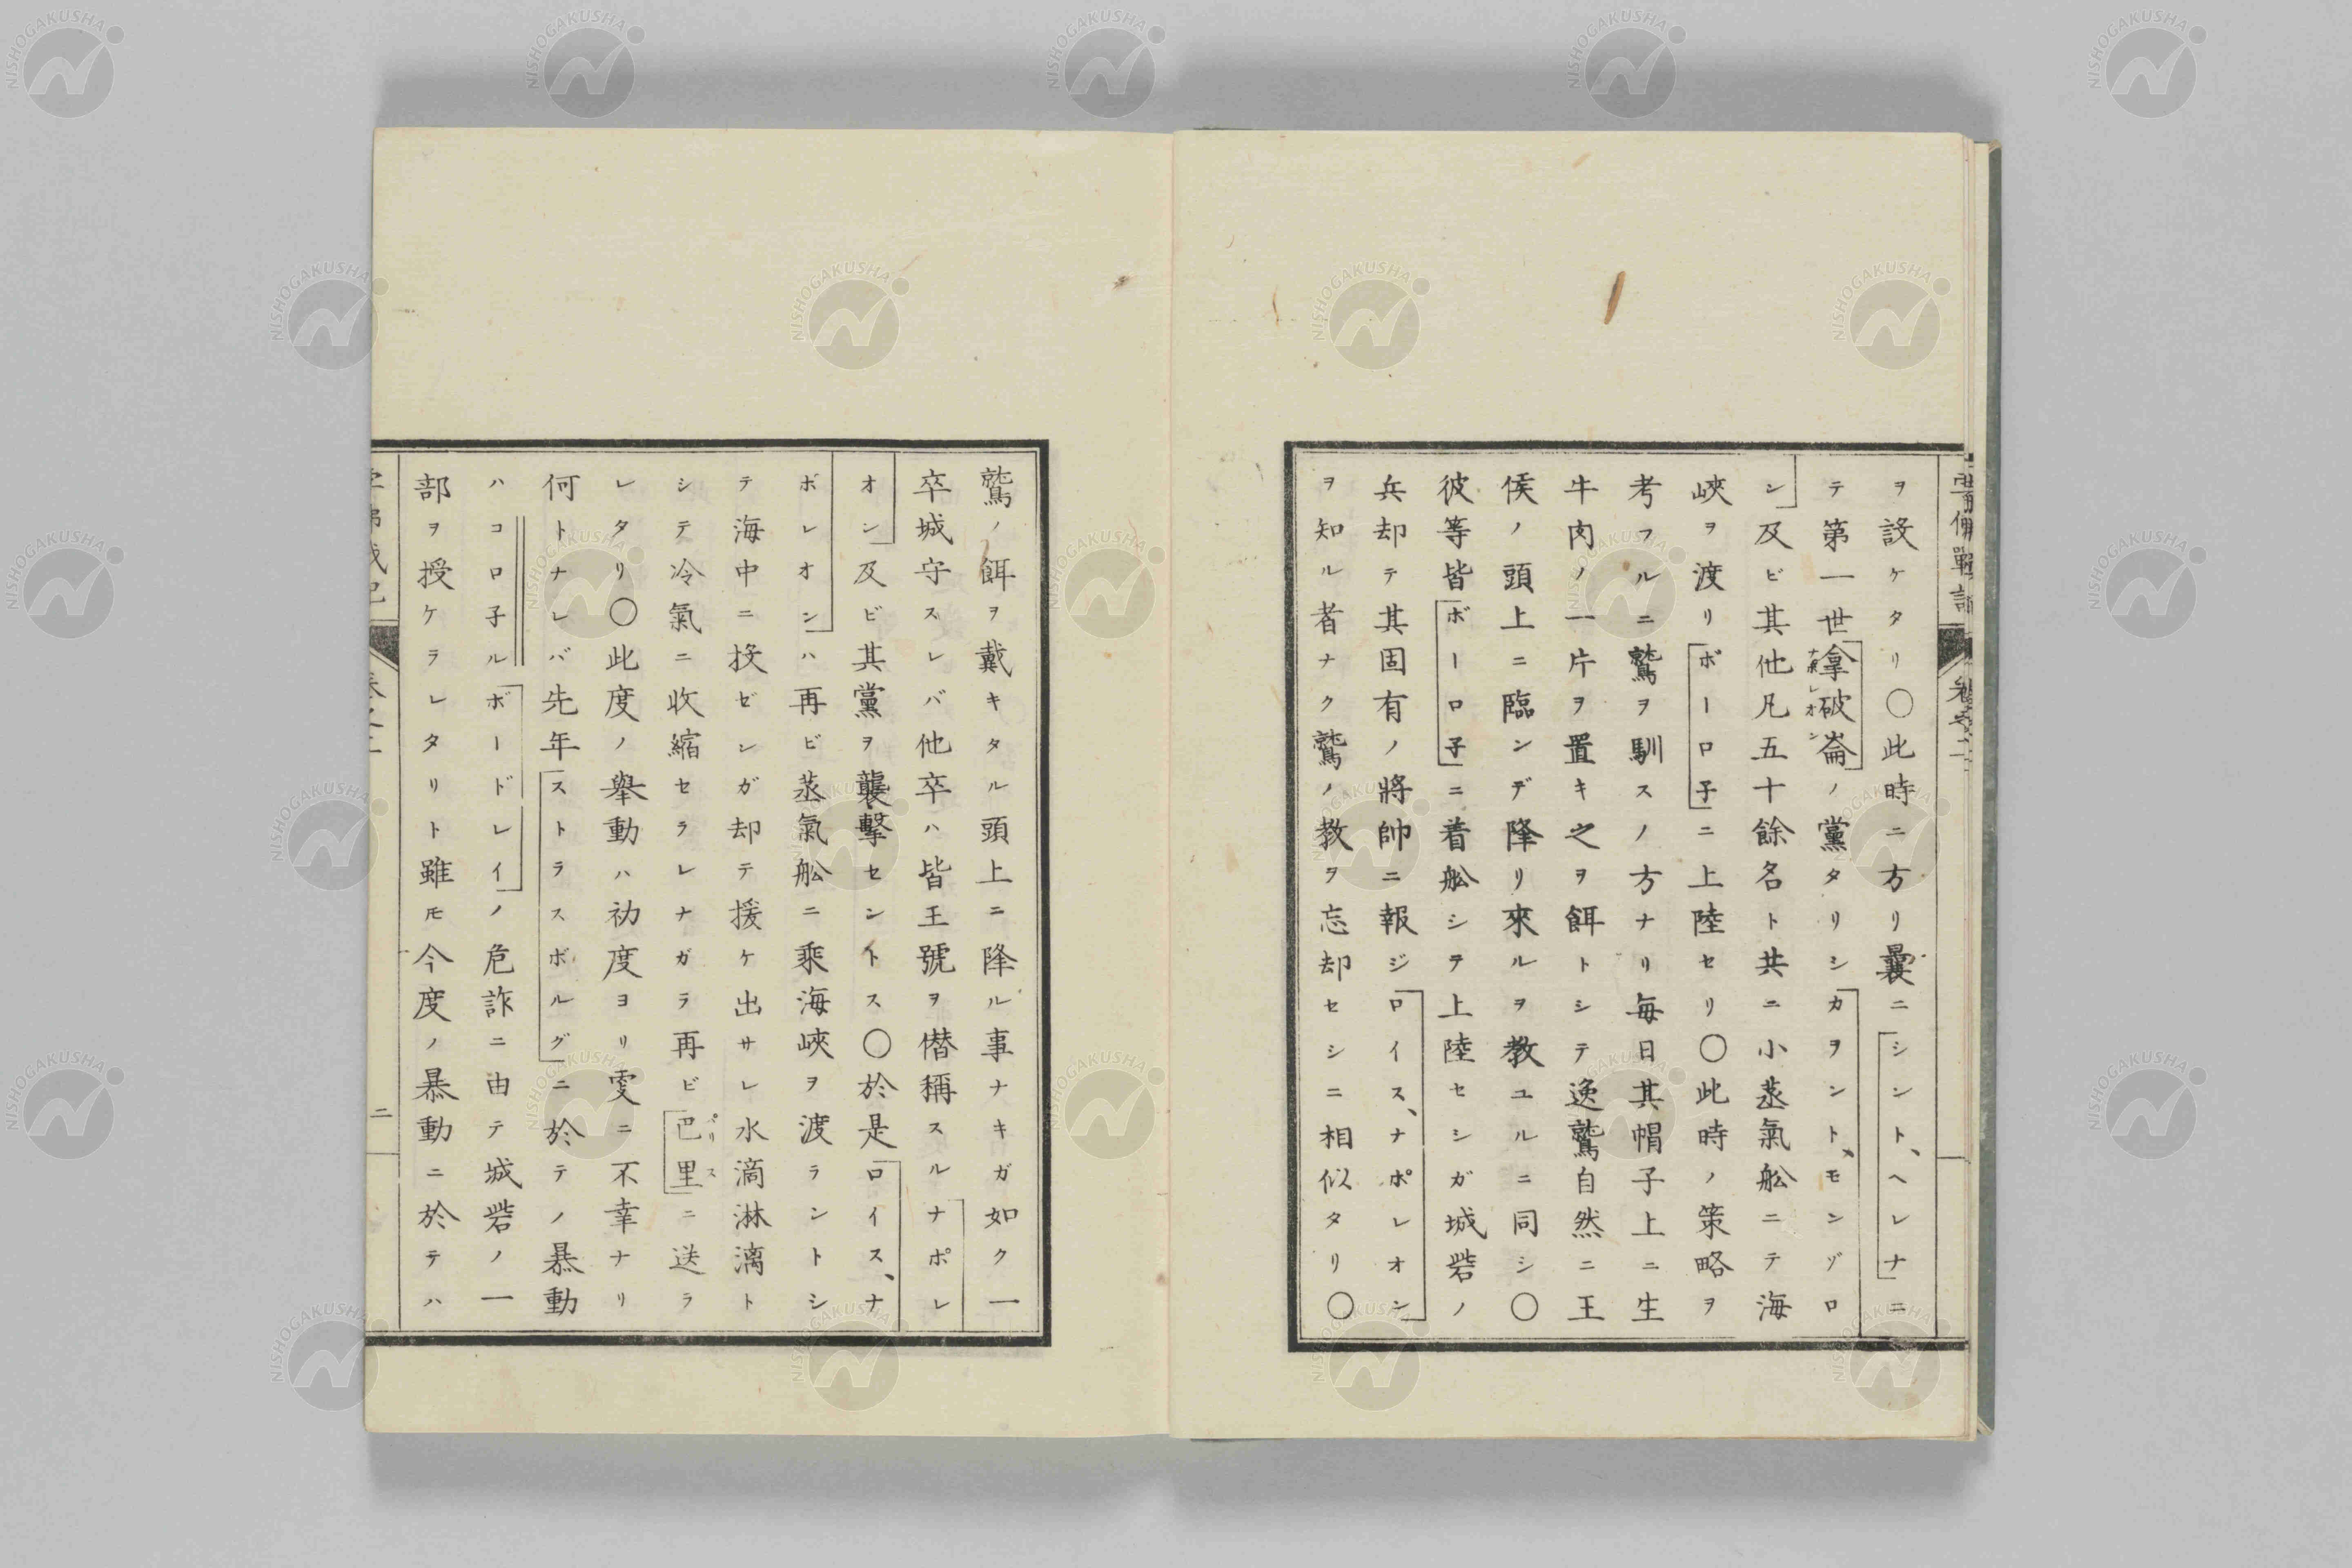 ヲ設ケタリ〇此時ニ方リ曩ニシント、ヘレナニ
テ第一世拿破崙ノ黨タリシカヲント、モンゾロ
ナポレオン
ン及ビ其他凡五十餘名ト共ニ小蒸氣舩ニテ海
峽ヲ渡リボーロ子ニ上陸セリ〇此時ノ策略ヲ
考フルニ鷲ヲ馴スノ方ナリ毎日其帽子上ニ生
牛肉ノ一片ヲ置キ之ヲ餌トシテ逸鷲自然ニ王
侯ノ頭上ニ臨ンデ降リ來ルヲ教ユルニ同シ〇
彼等皆ボーロ子ニ着舩シテ上陸セシガ城砦ノ
兵却テ其固有ノ將帥ニ報ジロイス、ナポレオン
ヲ知ル者ナク鷲ノ教ヲ忘却セシニ相似タリ〇
鷲ノ餌ヲ戴キタル頭上ニ降ル事ナキガ如ク一
卒城守スレバ他卒ハ皆王號ヲ僣稱スルナポレ
オン及ビ其黨ヲ襲擊セントス〇於是ロイス、ナ
ボレオンハ再ビ蒸氣舩ニ乘海峽ヲ渡ラントシ
テ海中ニ投ゼシガ却テ援ケ出サレ水滴淋漓ト
シテ冷氣ニ收縮セラレナガラ再ビ巴里ニ送ラ
パリス
レタリ〇此度ノ舉動ハ初度ヨリ更ニ不幸ナリ
何トナレバ先年ストラスボルグニ於テノ暴動
ハコロ子ルボードレイノ危詐ニ由テ城砦ノ一
部ヲ授ケラレタリト雖モ今度ノ暴動ニ於テハ
二